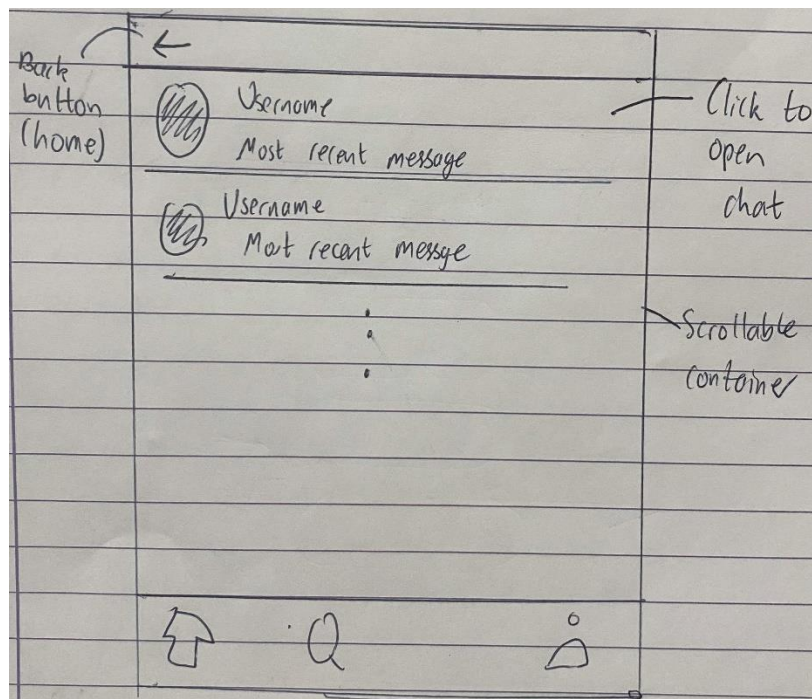 Back
button
(home)
←
Username
Most recent message
Username
Most recent messge
Click to
open
chat
Scrollable
container